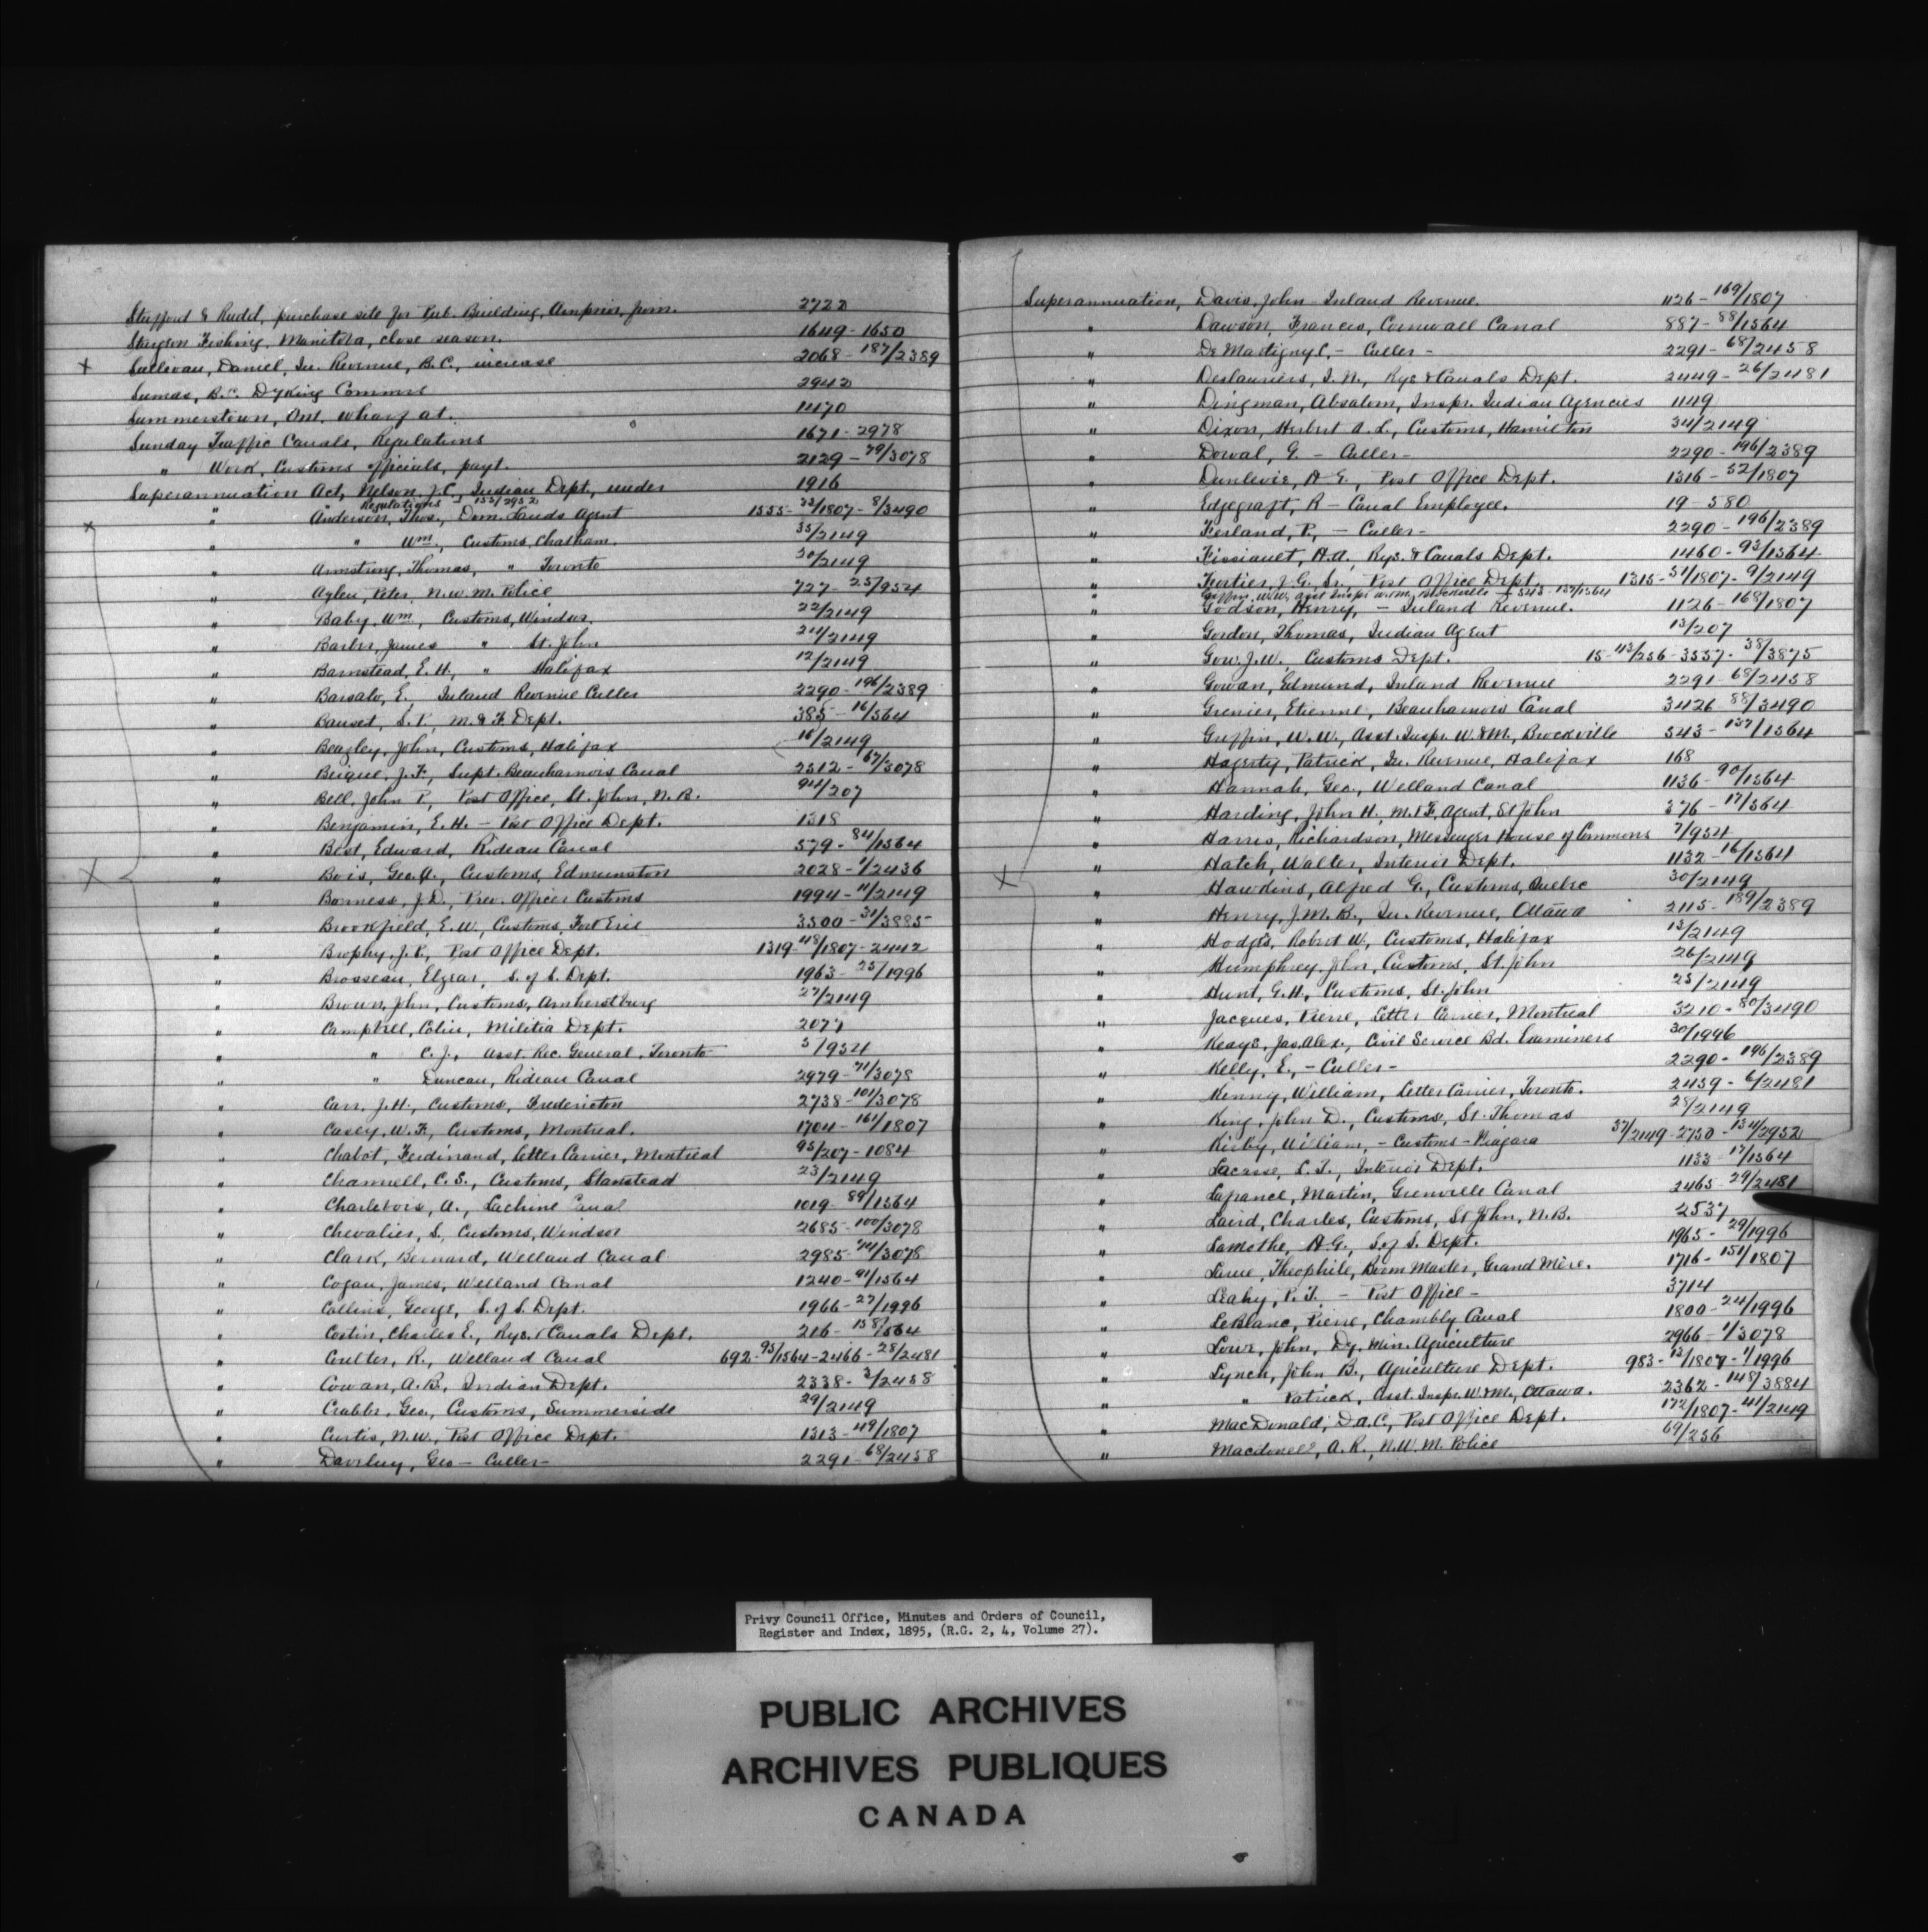 Stafford & Rudd, purchase site for Pub. Building, Arnprior, from. 2722
Sturgeon Fishing, Manitoba, close season. 1649 - 1650
Sullivan, Daniel, In. Revenue, B.C., increase 2068 - 187/2389
Sumas, B.C. Dyking Commrs 2942
Summerstown, Ont. wharf at. 1170
Sunday Traffic Canals, Regulations 1671 - 2978
" Work, Customs officials, payt. 2129 - 79/3078
Superannuation Act, Nelson, J.C., Indian Dept., under 1916
" Regulations 153/2952
" Anderson, Thos., Dom. Lands Agent 1555 - 33/1807 - 8/3490
" " Wm., Customs, Chatham. 35/2149
" Armstrong, Thomas, " Toronto 20/2149
" Aylen, Peter, N.W.M. Police 727 - 25/954
" Baby, Wm, Customs, Windsor. 22/2149
" Barber, James " St. John 24/2149
" Barnstead, E. H., " Halifax 12/2149
" Barsalo, E., Inland Revenue Culler 2290 - 196/2389
" Bauset, S. P., M. & F. Dept. 385 - 16/564
" Beazley, John, Customs, Halifax 16/2149
" Beique, J. F., Supt. Beauharnois Canal 2512 - 67/3078
" Bell, John P., Post Office, St. John, N. B. 94/207
" Benjamin, E. H. - Post Office Dept. 1318
" Best, Edward, Rideau Canal 579 - 84/1564
" Bois, Geo. A., Customs, Edmunston 2028 - 1/2436
" Borness, J. D., Prev. Officer Customs 1994 - 11/2149
" Brookfield, E. W., Customs, Fort Erie 3500 - 31/3885
" Brophy, J. P., Post Office Dept. 1319 - 48/1807 - 2442
" Brosseau, Elzear, S. of S. Dept. 1963 - 25/1996
" Brown, John, Customs, Amherstburg 27/2149
" Campbell, Colin, Militia Dept. 2077
" " C. J., Asst. Rec. General, Toronto 5/954
" " Duncan, Rideau Canal 2979 - 71/3078
" Carr, J. H., Customs, Fredericton 2738 - 101/3078
" Casey, W. F., Customs, Montreal. 1704 - 161/1807
" Chabot, Ferdinand, Letter Carrier, Montreal 95/207 - 1084
" Channell, C. S., Customs, Stanstead 23/2149
" Charlebois, A., Lachine Canal 1019 - 89/1564
" Chevalier, S., Customs, Windsor 2685 - 100/3078
" Clark, Bernard, Welland Canal 2985 - 74/3078
" Cogan, James, Welland Canal 1240 - 91/1564
" Collins, George, S. of S. Dept. 1966 - 27/1996
" Costin, Charles E., Rys. & Canals Dept. 216 - 158/564
" Coulter, R., Welland Canal 692 - 95/1564 - 2466 - 28/2481
" Cowan, A. B., Indian Dept. 2338 - 3/2458
" Crabbe, Geo., Customs, Summerside 29/2149
" Curtis, N. W., Post Office Dept. 1313 - 49/1807
" Daveluy, Geo - Culler - 2291 - 68/2458
Superannuation, Davis, John Inland Revenue. 1126 - 169/1807
" Dawson, Francis, Cornwall Canal 887 - 88/1564
" De Martigny, C. - Culler - 2291 - 68/2458
" Deslauriers, J. N., Rys & Canals Dept. 2449 - 26/2481
" Dingman, Absalom, Inspr. Indian Agencies 1149
" Dixon, Herbert A. L., Customs, Hamilton 34/2149
" Dorval, G. - Culler - 2290 - 196/2389
" Dunlevie, H. G., Post Office Dept. 1316 - 52/1807
" Edgecraft, R - Canal Employee. 19 - 580
" Ferland, P., - Culler - 2290 - 196/2389
" Fissiault, H. A., Rys. & Canals Dept. 1460 - 93/1564
" Fortier, J. G. Sr., Post Office Dept. 1315 - 51/1807 - 9/2149
" Griffin, W. W. Asst Inspr W. & M. Brockville 543 - 137/1564
" Godson, Henry, - Inland Revenue. 1126 - 168/1807
" Gordon, Thomas, Indian Agent 13/207
" Gow, J. W., Customs Dept. 15 - 43/256 - 3557 - 38/3875
" Gowan, Edmund, Inland Revenue 2291 - 68/2458
" Grenier, Etienne, Beauharnois Canal 3426 88/3490
" Griffin, W. W., Asst. Inspr. W. & M., Brockville 543 - 137/1564
" Hagerty, Patrick, In. Revenue, Halifax 168
" Hannah, Geo., Welland Canal 1136 - 90/1564
" Harding, John H., M. & F. Agent, St John 376 - 17/564
" Harris, Richardson, Messenger House of Commons 7/954
" Hatch, Walter, Interior Dept. 1132 - 16/1564
" Hawkins, Alfred G., Customs, Quebec 30/2149
" Henry, J. M. B., In. Revenue, Ottawa 2115 - 189/2389
" Hodges, Robert W., Customs, Halifax 13/2149
" Humphrey, John, Customs, St. John 26/2149
" Hunt, G. H., Customs, St. John 25/2149
" Jacques, Pierre, Letter Carrier, Montreal 3210 - 80/3490
" Keays, Jas. Alex., Civil Service Bd. Examiners 30/1996
" Kelly, E., - Culler - 2290 - 196/2389
" Kenny, William, Letter Carrier, Toronto. 2439 - 6/2481
" King, John D., Customs, St. Thomas 28/2149
" Kirby, William, - Customs - Niagara 37/2149 - 2750 - 134/2952
" Lacasse, L. T., Interior Dept. 1133 - 17/1564
" Lafrance, Martin, Grenville Canal 2465 - 29/2481
" Laird, Charles, Customs, St John, N. B. 2537
" Lamothe, H. G., S. of S. Dept. 1965 - 29/1996
" Larue, Theophile, Boom Master, Grand Mère. 1716 - 151/1807
" Leahy, P. J. - Post Office - 3714
" LeBlanc, Pierre, Chambly Canal 1800 - 24/1996
" Lowe, John, Dy. Min. Agriculture 2966 - 1/3078
" Lynch, John B., Agriculture Dept. 983 - 12/1807 - 1/1996
" " Patrick, Asst. Inspr. W. & M., Ottawa. 2362 - 148/3884
" MacDonald, D. A. C., Post Office Dept. 172/1807 - 41/2149
" Macdonell, A. R., N. W. M. Police 69/256
Privy Council Office, Minutes and Orders of Council,
Register and Index, 1895, (R.G. 2, 4, Volume 27).
PUBLIC ARCHIVES
ARCHIVES PUBLIQUES
CANADA